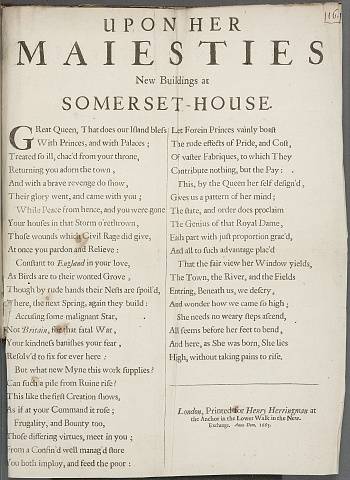 116
UPON HER
MAIESTIES
New Buildings at
SOMERSET-HOUSE.
GReat Queen, That does our Island bless
With Princes, and with Palaces;
Treated so ill, chac'd from your throne,
Returning you adorn the town,
And with a brave revenge do show,
Their glory went, and came with you;
While Peace from hence, and you were gone
Your houses in that Storm o'rethrown,
Those wounds which Civil Rage did give,
At once you pardon and Relieve:
Constant to England in your love,
As Birds are to their wonted Grove,
Though by rude hands their Nests are spoil'd,
There, the next Spring, again they build:
Accusing some malignant Star,
Not Britain, for that fatal War,
Your kindness banishes your fear,
Resolv'd to fix for ever here:
But what new Myne this work supplies?
Can such a pile from Ruine rise?
This like the first Creation shows,
As if at your Command it rose;
Frugality, and Bounty too,
Those differing virtues, meet in you;
From a Confin'd well manag'd store
You both imploy, and feed the poor:
Let Forein Princes vainly boast
The rude effects of Pride, and Cost,
Of vaster Fabriques, to which They
Contribute nothing, but the Pay:
This, by the Queen her self design'd,
Gives us a pattern of her mind;
The state, and order does proclaim
The Genius of that Royal Dame,
Each part with just proportion grac'd,
And all to such advantage plac'd
That the fair view her Window yields,
The Town, the River, and the Fields
Entring, Beneath us, we descry,
And wonder how we came so high;
She needs no weary steps ascend,
All seems before her feet to bend,
And here, as She was born, She lies
High, without taking pains to rise.
London, Printed for Henry Herringman at
the Anchor in the Lower Walk in the New-
Exchange. Anno Dom. 1665.